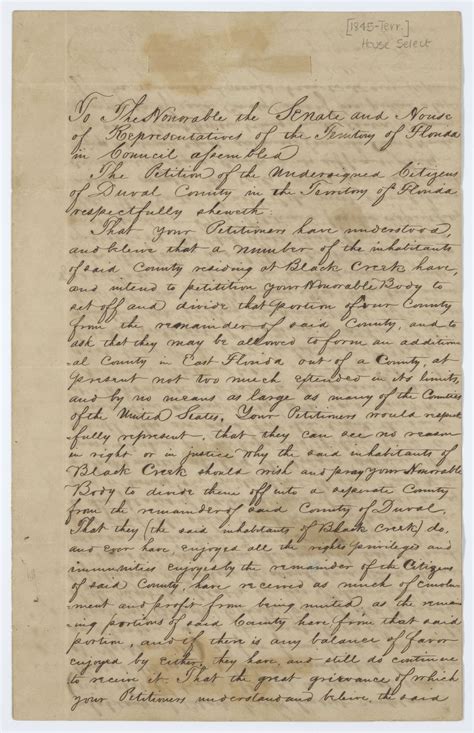 [1845-Terr.]
House Select
To The Honorable the Senate and House
of Representatives of the Territory of Florida
in Council assembled
The Petition of the Undersigned Citizens
of Duval County in the Territory of Florida
respectfully sheweth:
That your Petitioners have understood,
and beleive that a number of the inhabitants
of said County residing at Black Creek have,
and intend to petition your Honorable Body to
set off and divide that portion of our County
from the remainder of said County, and to
ask that they may be allowed to form an addition
al County in East Florida out of a County, at
present not too much extended in its limits,
and by no means as large as many of the Counties
of the United States. Your Petitioners would respect
fully represent, that they can see no reason
in right or in justice why the said inhabitants of
Black Creek should wish and pray your Honorable
Body to divide them off into a separate County
from the remainder of said County of Duval.
That they (the said inhabitants of Black Creek) do,
and ever have, enjoyed all the rights privileges and
immunities enjoyed by the remainder of the Citizens
of said County, have received as much of emolu
ment and profit from being united, as the remain
ing portions of said County have from that said
portion, and if there is any balance of favor
enjoyed by either, they have and still do continue
to receive it. That the great grievance of which
your Petitioners understand and beleive, the said